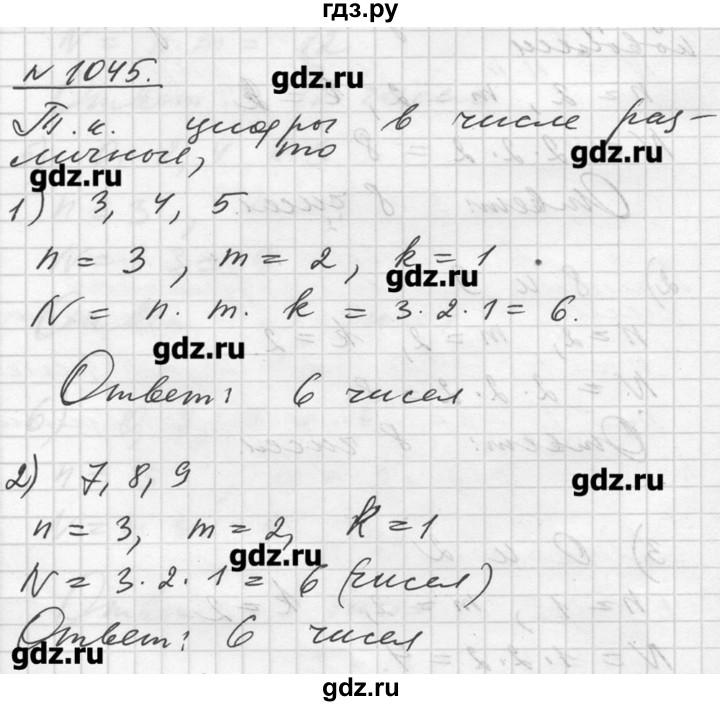 гдз.ру
№ 1045.
gdz.ru
Т.к. цифры в числе раз-
gdz.ru
личные, то
gdz.ru
1) 3, 4, 5.
n = 3, m = 2, k = 1.
gdz.ru
N = n · m · k = 3 · 2 · 1 = 6.
gdz.ru
Ответ: 6 чисел
2) 7, 8, 9
gdz.ru
n = 3, m = 2, k = 1
gdz.ru
N = 3 · 2 · 1 = 6 (чисел)
Ответ: 6 чисел
gdz.ru
gdz.ru